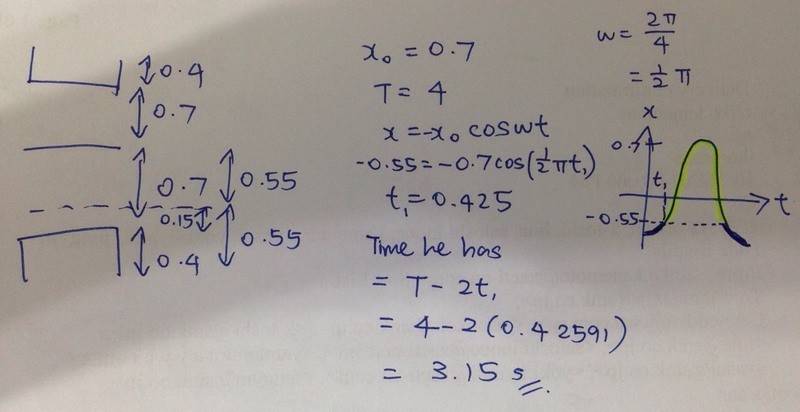 0.4
0.7
0.7
0.55
0.15
0.55
0.4
x₀ = 0.7
T = 4
x = -x₀ cos ωt
-0.55 = -0.7 cos(½πt₁)
t₁ = 0.425
Time he has
= T - 2t₁
= 4 - 2(0.42591)
= 3.15 s
ω = 2π/4
= ½π
x
0.7
t₁
t
-0.55